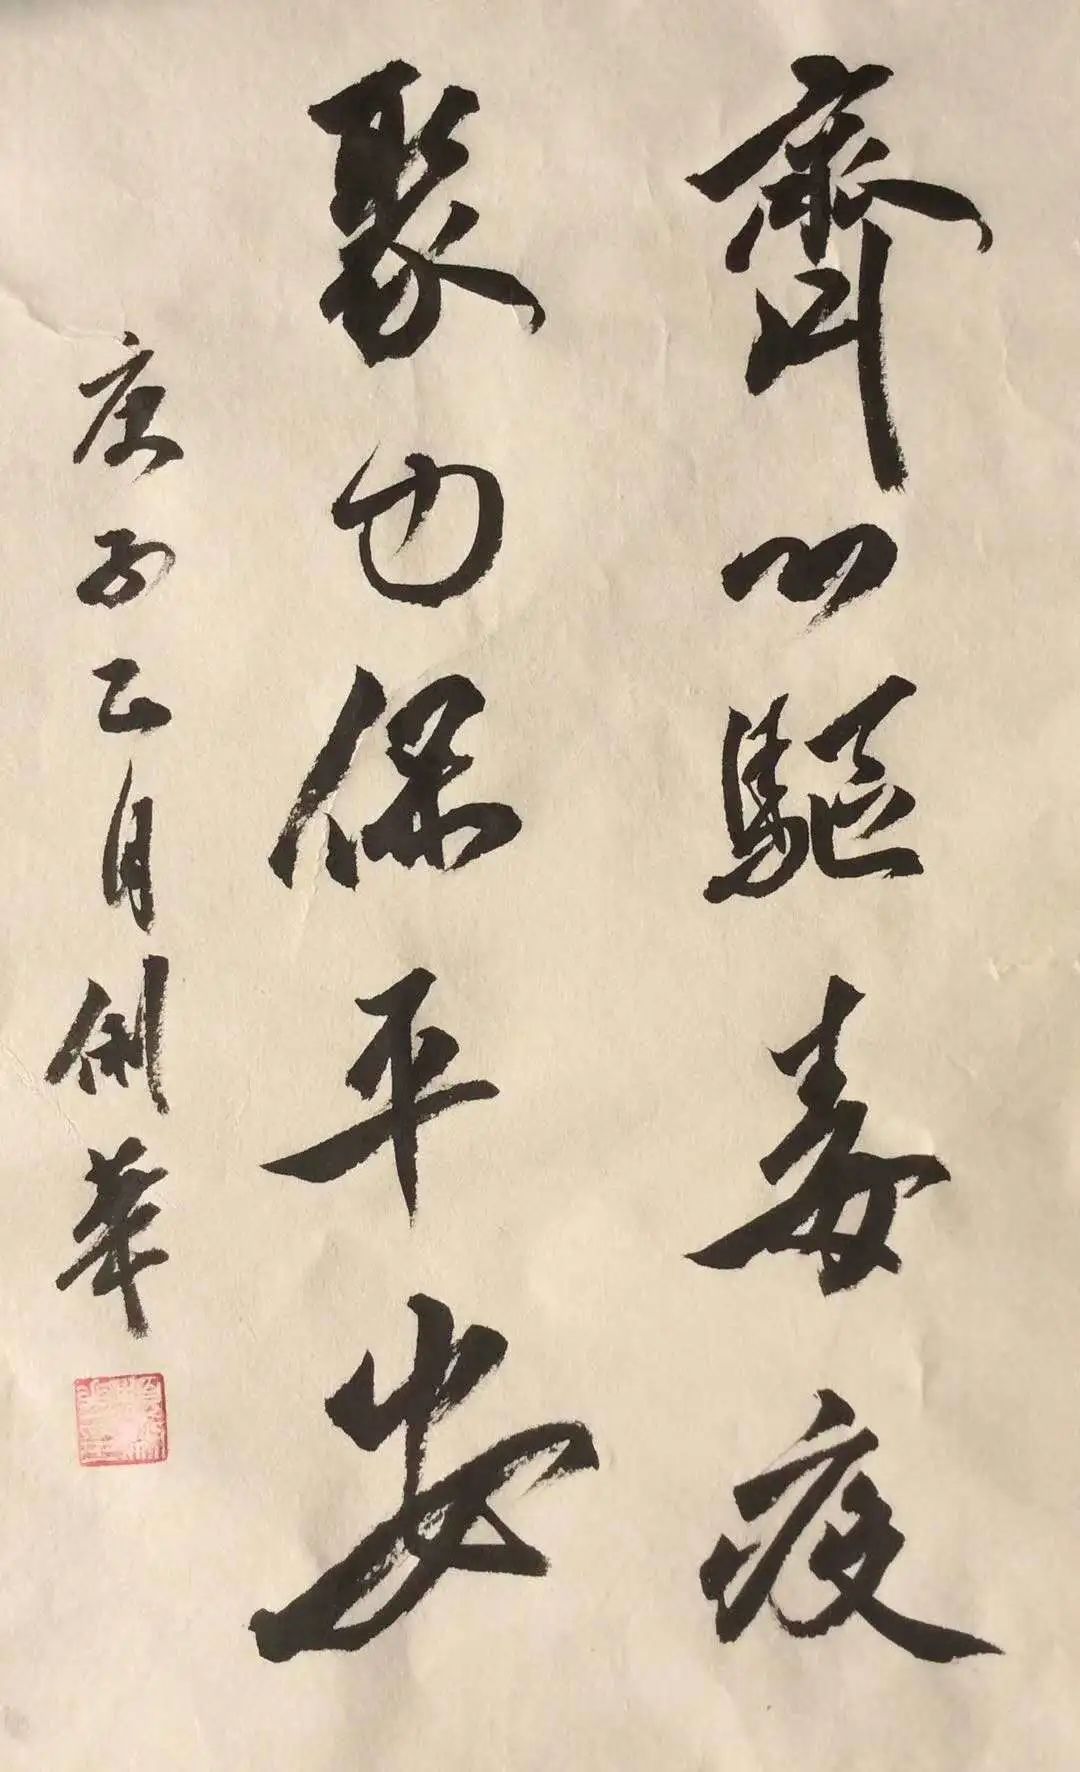 齊心驅毒疫
聚力保平安
庚子正月俐華